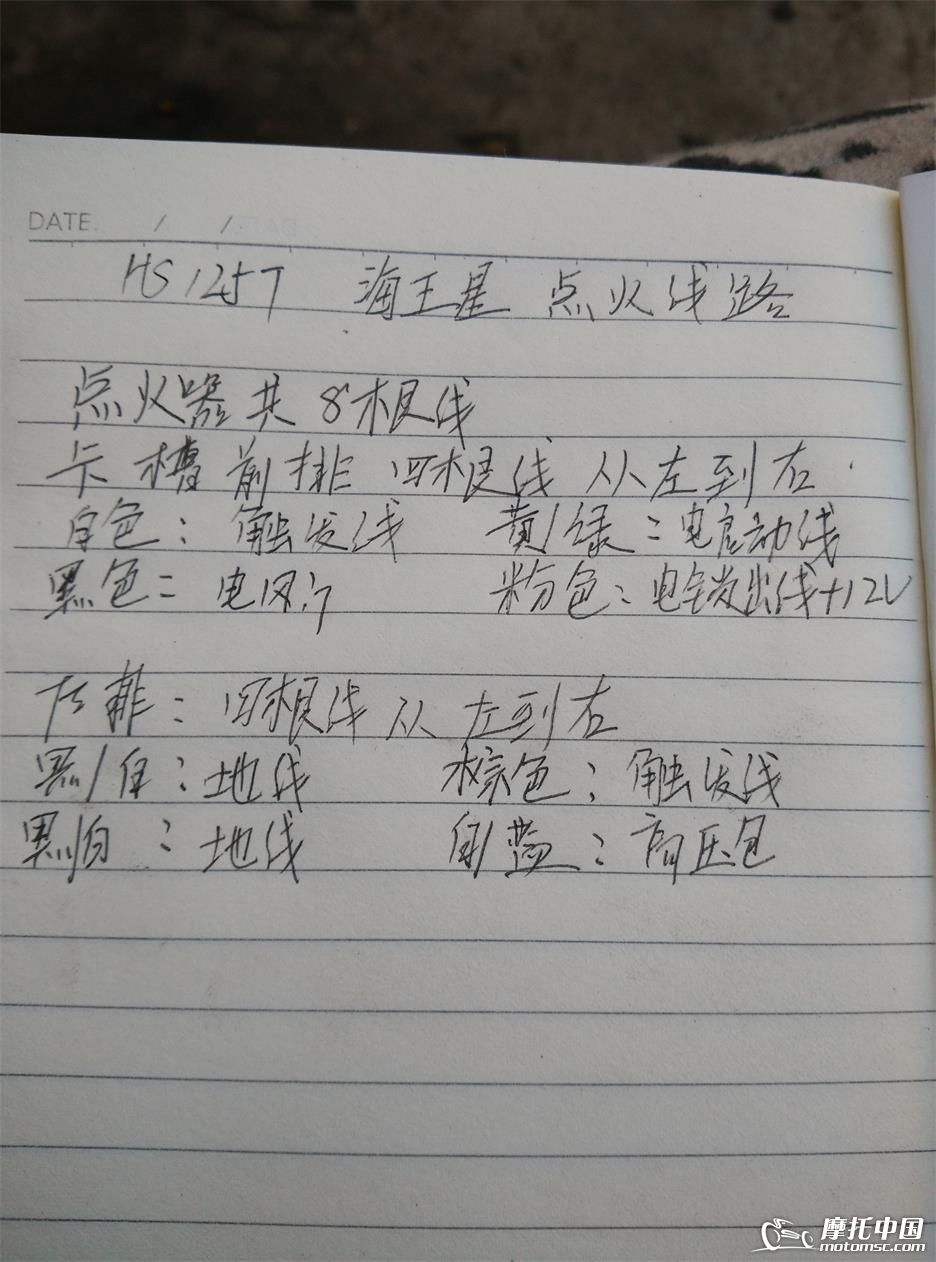 DATE. / /
HS125T 海王星 点火线路
点火器共8根线
卡槽前排四根线从左到右.
白色: 触发线 黄/绿: 电启动线
黑色: 电风门 粉色: 电锁发出线+12V
后排: 四根线从左到右
黑/白: 地线 棕色: 触发线
黑/白: 地线 白/蓝: 高压包
摩托中国
motomsc.com